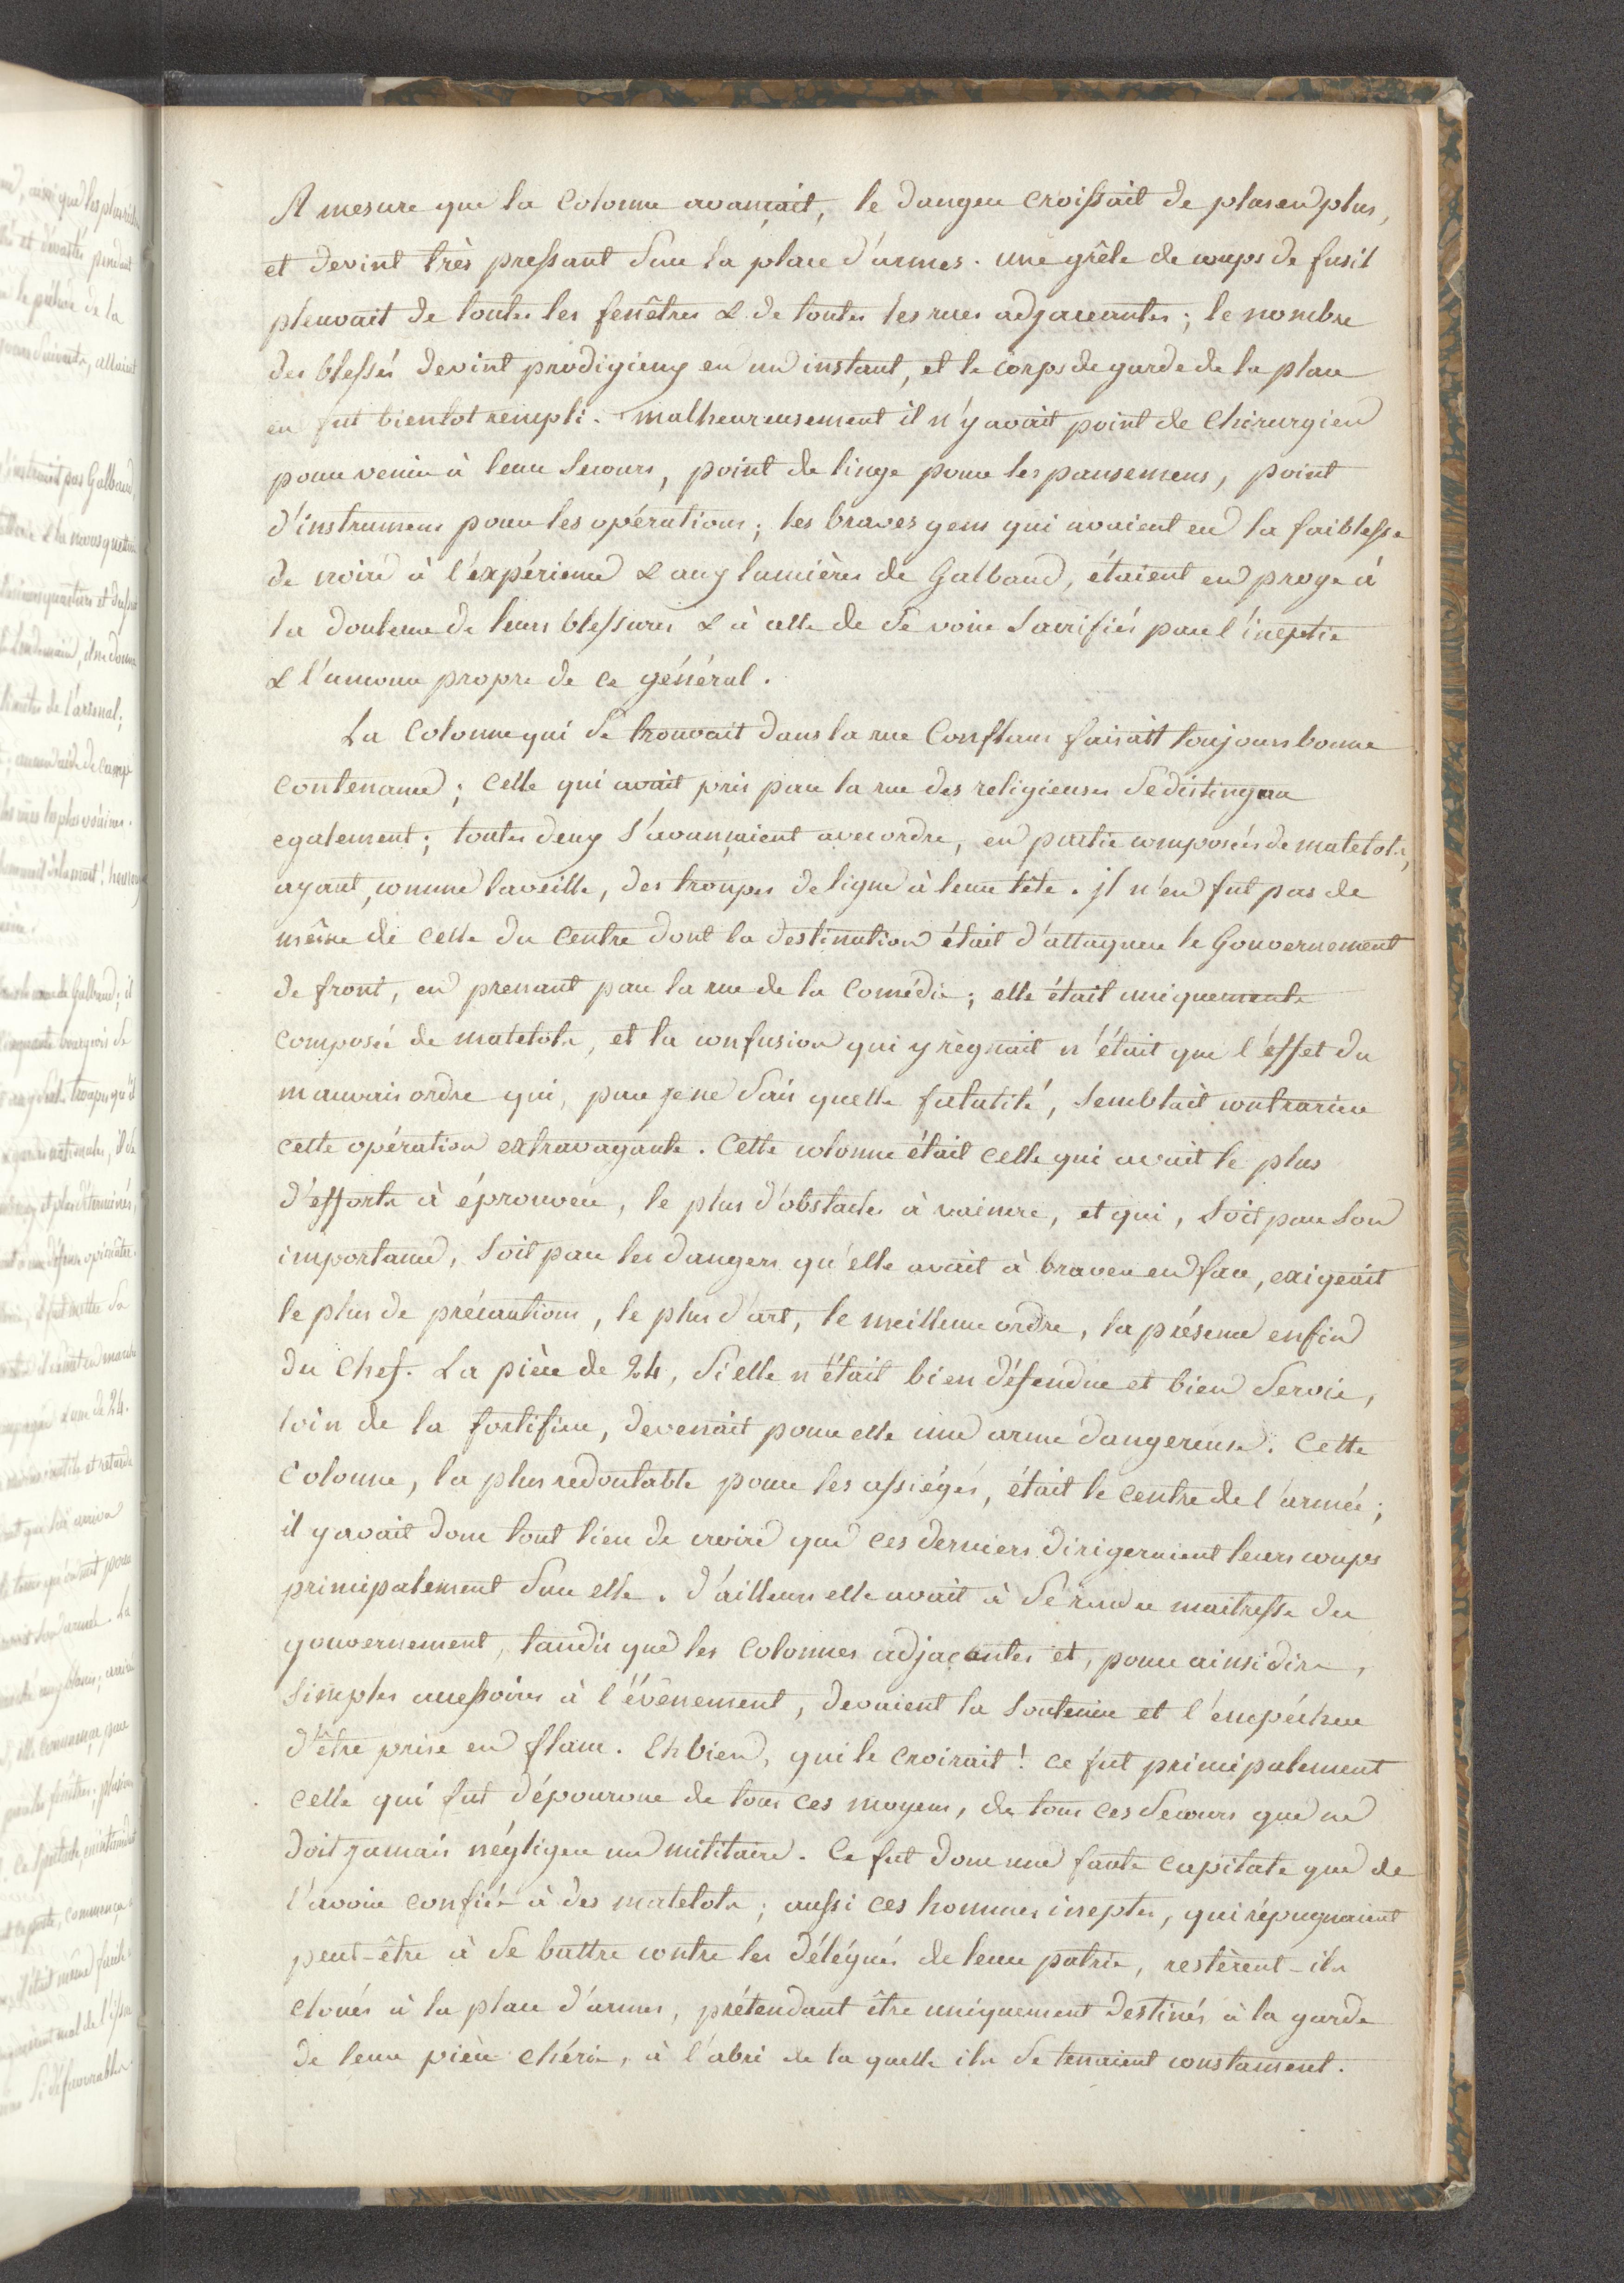 A mesure que la Colonne avançait, le danger croissait de plus en plus,
et devint très pressant sur la place d'armes. une grêle de coups de fusil
pleuvait de toutes les fenêtres & de toutes les rues adjaceantes ; le nombre
des blessés devint prodigieux en un instant, et le corps de garde de la place
en fut bientot rempli. malheureusement il n'y avait point de Chirurgien
pour venir à leur secours, point de linge pour les pansemens, point
d'instrumens pour les opérations ; les braves gens qui avaient eu la faiblesse
de croire à l'expérience & aux lumières de Galbaud, étaient en proye à
la douleur de leurs blessures & à celle de se voir sacrifiés par l'ineptie
& l'amour propre de ce général.
La Colonne qui se trouvait dans la rue Conflans faisait toujours bonne
contenance ; celle qui avait pris par la rue des religieuses se distingua
egalement ; toutes deux s'avançaient avec ordre, en partie composées de matelots,
ayant, comme la veille, des troupes de ligne à leur tête. il n'en fut pas de
même de celle du centre dont la destination était d'attaquer le Gouvernement
de front, en prenant par la rue de la Comédie ; elle était uniquement
composée de matelots, et la confusion qui y règnait n'était que l'effet du
mauvais ordre qui, par je ne sais quelle fatalité, semblait contrarier
cette opération extravagante. Cette colonne était celle qui avait le plus
d'efforts à éprouver, le plus d'obstacles à vaincre, et qui, soit par son
importance, soit par les dangers qu'elle avait à braver en face, exigeait
le plus de précautions, le plus d'art, le meilleur ordre, la présence enfin
du Chef. La pièce de 24, si elle n'était bien défendue et bien servie,
loin de la fortifier, devenait pour elle une arme dangereuse. Cette
Colonne, la plus redoutable pour les assiégés, était le centre de l'armée ;
il y avait donc tout lieu de croire que ces derniers dirigeraient leurs coups
principalement sur elle. d'ailleurs elle avait à se rendre maitresse du
gouvernement, tandis que les Colonnes adjaçantes et, pour ainsi dire,
simples accessoires à l'évènement, devaient la soutenir et l'empécher
d'être prise en flanc. Eh bien, qui le croirait ! ce fut principalement
celle qui fut dépourvue de tous ces moyens, de tous ces secours que ne
doit jamais négliger un militaire. Ce fut donc une faute capitale que de
l'avoir confiée à des matelots ; aussi ces hommes ineptes, qui répugnaient
peut-être à se battre contre les délégués de leur patrie, restèrent-ils
cloués à la place d'armes, prétendant être uniquement destinés à la garde
de leur pièce chérie, à l'abri de la quelle ils se tenaient constament.